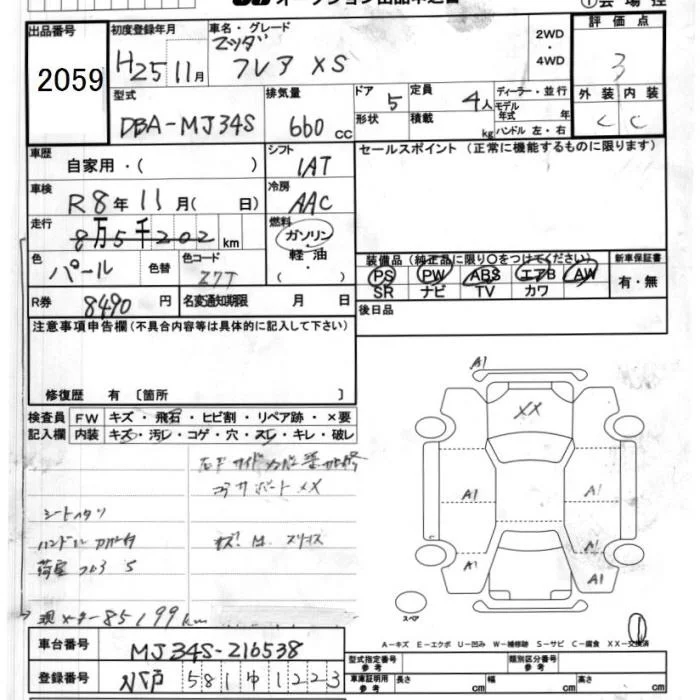 オークション出品申込書
①会場控
出品番号
2059
初度登録年月
H25 11月
車名・グレード
マツダ
フレア XS
2WD
・
4WD
評価点
3
型式
DBA-MJ34S
排気量
660 cc
ドア
5
定員
4人
形状
積載
kg
ディーラー・並行
モデル
年式 年
ハンドル 左・右
外装
内装
C
C
車歴
自家用・( )
シフト
IAT
セールスポイント (正常に機能するものに限ります)
車検
R8年 11月( 日)
冷房
AAC
走行
8万5千202km
燃料
ガソリン
軽油
・
( )
色
パール
色替
色コード
Z7T
装備品 (純正品に限り○をつけてください)
PS PW ABS エアB AW
SR ナビ TV カワ
新車保証書
有・無
R券
8490円
名変通知期限 月 日
後日品
注意事項申告欄(不具合内容等は具体的に記入して下さい)
修復歴 有 〔箇所 〕
検査員
記入欄
FW キズ・飛石・ヒビ割・リペア跡・×要
内装 キズ・汚レ・コゲ・穴・スレ・キレ・破レ
コアサポートXX
シートヘタリ
現メーター85199km
A1
XX
A1
A1
A1
A1
A1
スペア
A-キズ E-エクボ U-凹み W-補修跡 S-サビ C-腐食 XX-交換済
車台番号
MJ34S-216538
登録番号
581
1223
型式指定番号
参考
類別区分番号
参考
車庫証明用
参考
長さ cm
幅 cm
高さ cm